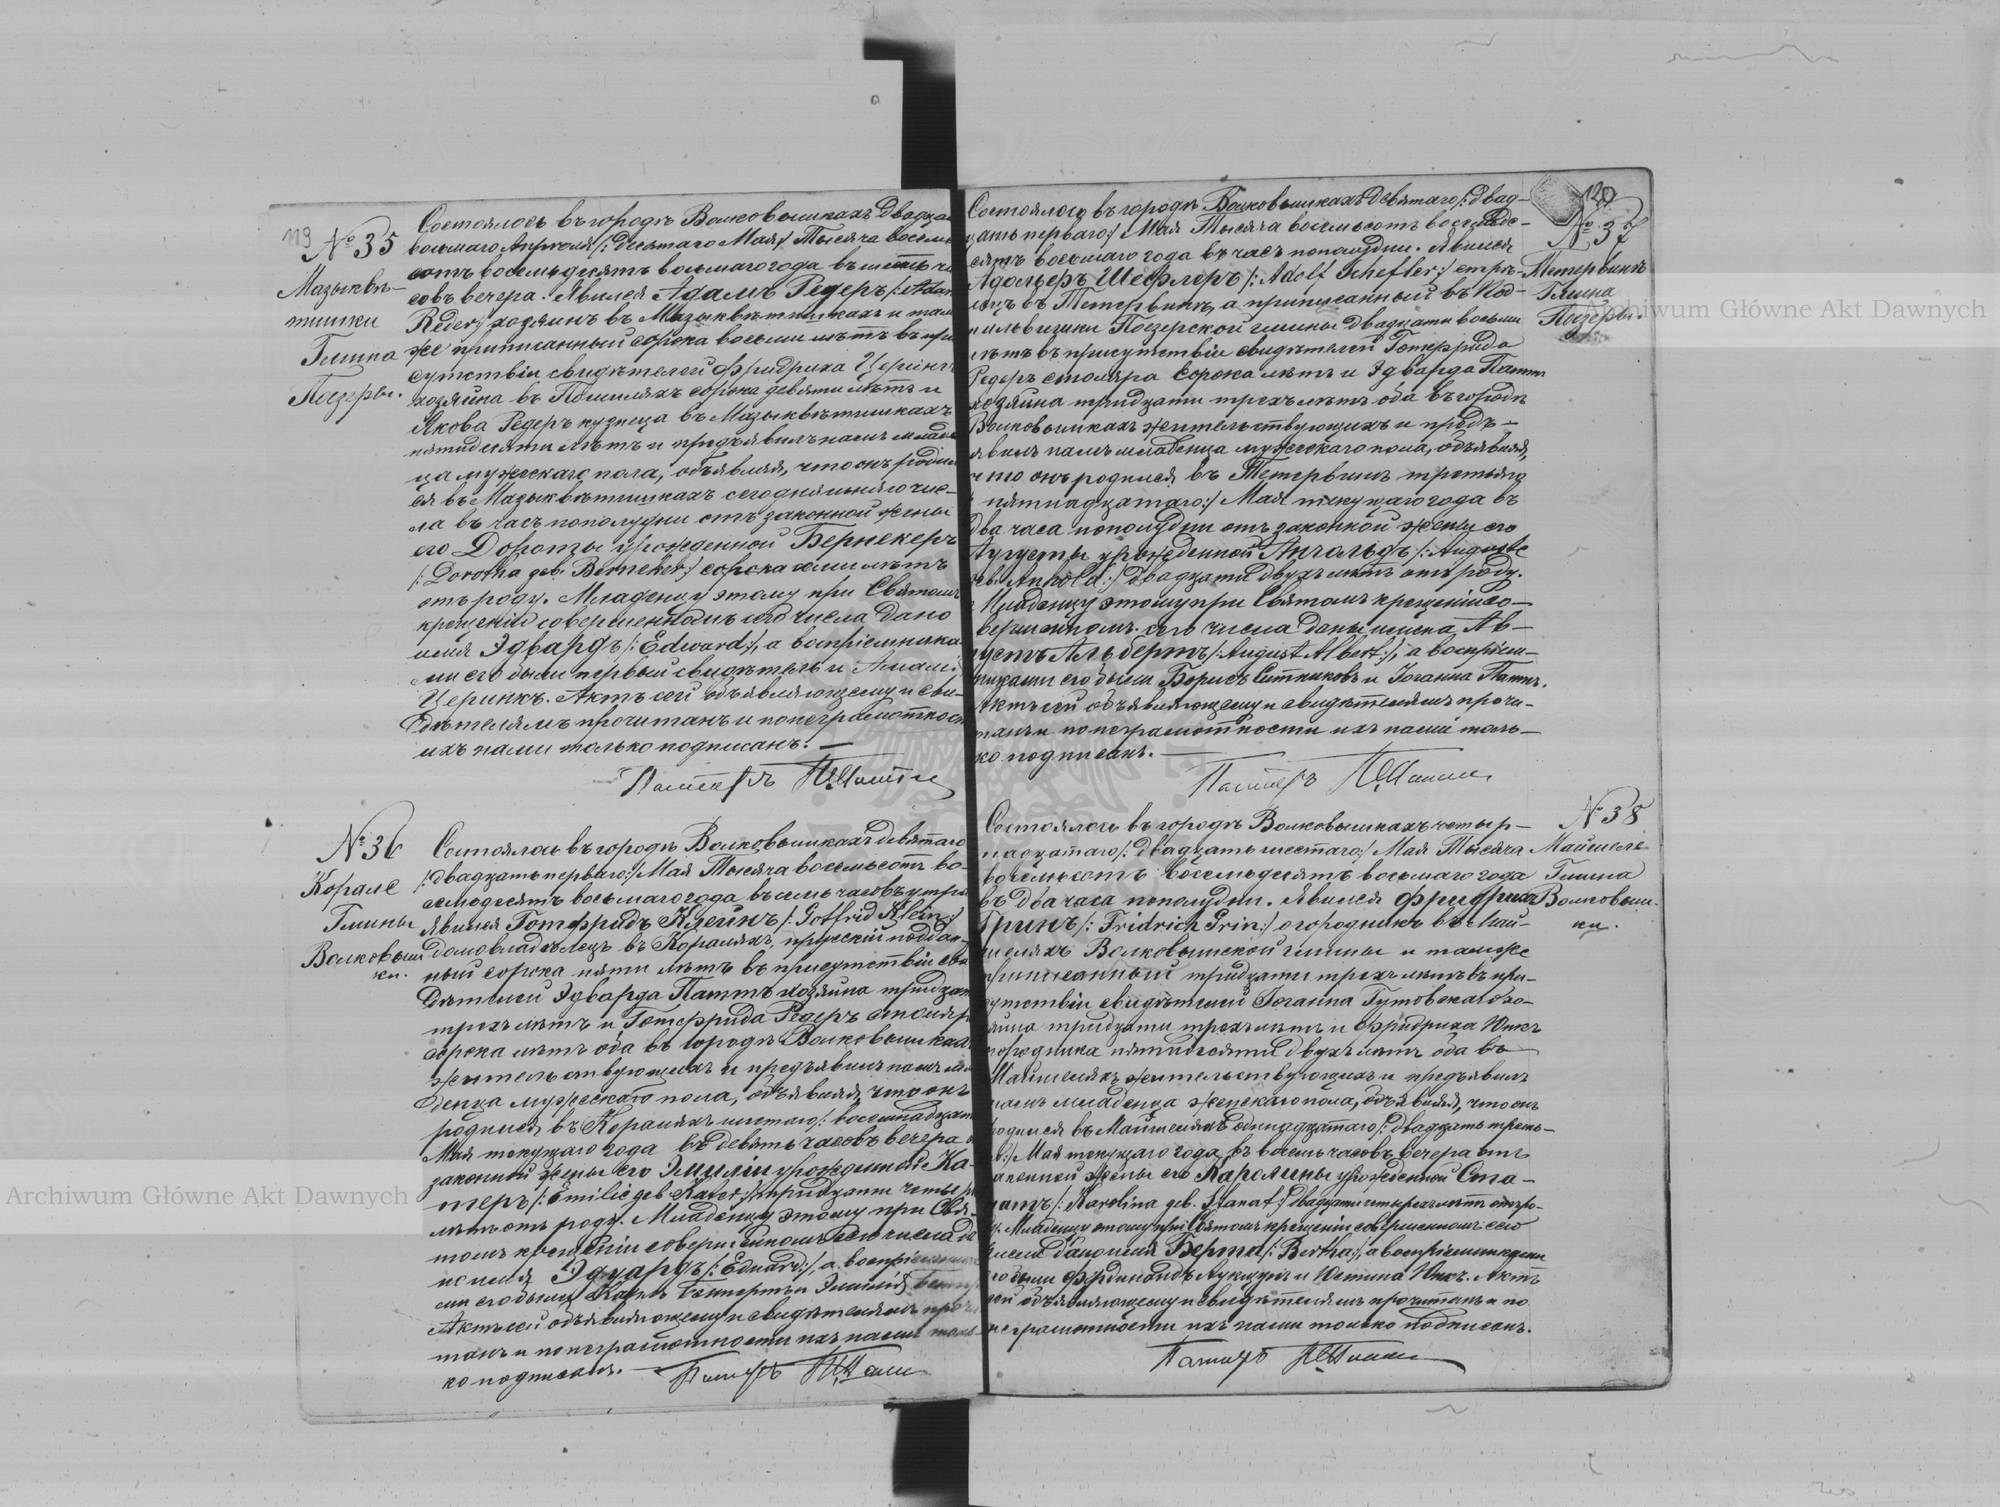 119
№ 35
Мазыквѣ-
тишки
Гмина
Поезеры.
Состоялось въ городѣ Волковышкахъ двадца
восьмаго Апрѣля /: десятаго Мая :/ Тысяча восемь
сотъ восемьдесятъ восьмаго года въ шесть ча
совъ вечера. Явился Адамъ Редеръ /: Adam
Reder :/ хозяинъ въ Мазыквѣтишкахъ и там
же приписанный сорока восьми лѣтъ въ при
сутствіи свидѣтелей Фридриха Церинк
хозяина въ сорока девяти лѣтъ и
Якова Редеръ кузнеца въ Мазыквѣтишкахъ
пятидесяти лѣтъ и предъявилъ намъ младе
ца мужескаго пола, объявляя, что онъ роди
ся въ Мазыквѣтишкахъ сегодняшняго чис-
ла въ часъ пополудни отъ законной жены
его Доротэи урожденной Бернекеръ
/: Dorothea geb. Berneker :/ сорока лѣтъ
отъ роду. Младенцу этому при Святомъ
крещеніи совершенномъ сего числа дано
имя Эдвардъ /: Edward :/, а воспріемника
ми его были первый свидѣтель и Амалі
Церинкъ. Актъ сей объявляющему и сви-
дѣтелямъ прочитанъ и по неграмотности
ихъ нами только подписанъ. —
Пасторъ
№ 36
Корале
Гмины
Волковыш
ки.
Состоялось въ городѣ Волковышкахъ девятаго
/: двадцать перваго :/ Мая Тысяча восемьсотъ во-
семьдесятъ восьмаго года въ семь часовъ утра
явился Готфридъ Клейнъ /: Gotfrid Klein :/
домовладѣлецъ въ Кораляхъ, прусскій поддан-
ный сорока пяти лѣтъ въ присутствіи сви
дѣтелей Эдварда Паттъ хозяина тридцат
трехъ лѣтъ и Готфрида Редеръ столяр
сорока лѣтъ оба въ городѣ Волковышкахъ
жительствующихъ и предъявилъ намъ мла
денца мужескаго пола, объявляя, что онъ
родился въ Кораляхъ шестаго /: восемнадцат
Мая текущаго года въ девять часовъ вечера о
законной жены его Эмиліи урожденной Ка-
теръ /: Emilie geb. Kater :/ тридцати четыре
лѣтъ отъ роду. Младенцу этому при Свя-
томъ крещеніи совершенномъ сего числа да
но имя Эдуардъ /: Eduard :/, а воспріемника
ми его были Карлъ и Эмилія
Актъ сей объявляющему и свидѣтелямъ проч
танъ и по неграмотности ихъ нами толь-
ко подписанъ. —
Пасторъ
120
№ 37
Метервинъ
Гмина
Поезеры.
Состоялось въ городѣ Волковышкахъ девятаго /: двад-
цать перваго :/ Мая Тысяча восемьсотъ восемьде-
сятъ восьмаго года въ часъ пополудни. Явился
Адольфъ Шефлеръ /: Adolf Schefler :/ стрѣ-
лецъ въ а приписанный въ Под-
Поезерской гмины двадцати восьми
лѣтъ въ присутствіи свидѣтелей Готфрида
Редеръ столяра сорока лѣтъ и Эдварда Паттъ
хозяина тридцати трехъ лѣтъ оба въ городѣ
Волковышкахъ жительствующихъ и предъ-
явилъ намъ младенца мужескаго пола, объявляя,
что онъ родился въ третьяго
пятнадцатаго :/ Мая текущаго года въ
два часа пополудни отъ законной жены его
Августы урожденной Ангольдъ /: Auguste
geb. Anhold :/ двадцати двухъ лѣтъ отъ роду.
Младенцу этому при Святомъ крещеніи со-
вершенномъ сего числа даны имена Ав-
густъ Альбертъ /: August Albert :/, а воспріем-
никами его были Борисъ Ситниковъ и Іоганна Паттъ.
Актъ сей объявляющему и свидѣтелямъ прочи-
танъ и по неграмотности ихъ нами толь-
ко подписанъ. —
Пасторъ
№ 38
Майшеле
Гмина
Волковыш-
ки.
Состоялось въ городѣ Волковышкахъ четыр-
надцатаго /: двадцать шестаго :/ Мая Тысяча
восемьсотъ восемьдесятъ восьмаго года
въ два часа пополудни. Явился Фридрихъ
Гринъ /: Fridrich Grin :/ огородникъ въ Май-
шеляхъ Волковышской гмины и тамже
приписанный тридцати трехъ лѣтъ въ при-
сутствіи свидѣтелей Іоганна Гутовскаго хо-
зяина тридцати трехъ лѣтъ и Фридриха Юнкъ
огородника пятидесяти двухъ лѣтъ оба въ
Майшеляхъ жительствующихъ и предъявилъ
намъ младенца женскаго пола, объявляя, что онъ
родился въ Майшеляхъ одинадцатаго /: двадцать треть-
Мая текущаго года въ восемь часовъ вечера отъ
законной жены его Каролины урожденной Ста-
натъ /: Karolina geb. Stanat :/ двадцати четырехъ лѣтъ отъ ро-
ду. Младенцу этому при Святомъ крещеніи совершенномъ сего
числа дано имя Берта /: Bertha :/, а воспріемниками
его были Фердинандъ и Юстина Юнкъ. Актъ
сей объявляющему и свидѣтелямъ прочитанъ и по
неграмотности ихъ нами только подписанъ.
Пасторъ
Archiwum Główne Akt Dawnych
Archiwum Główne Akt Dawnych